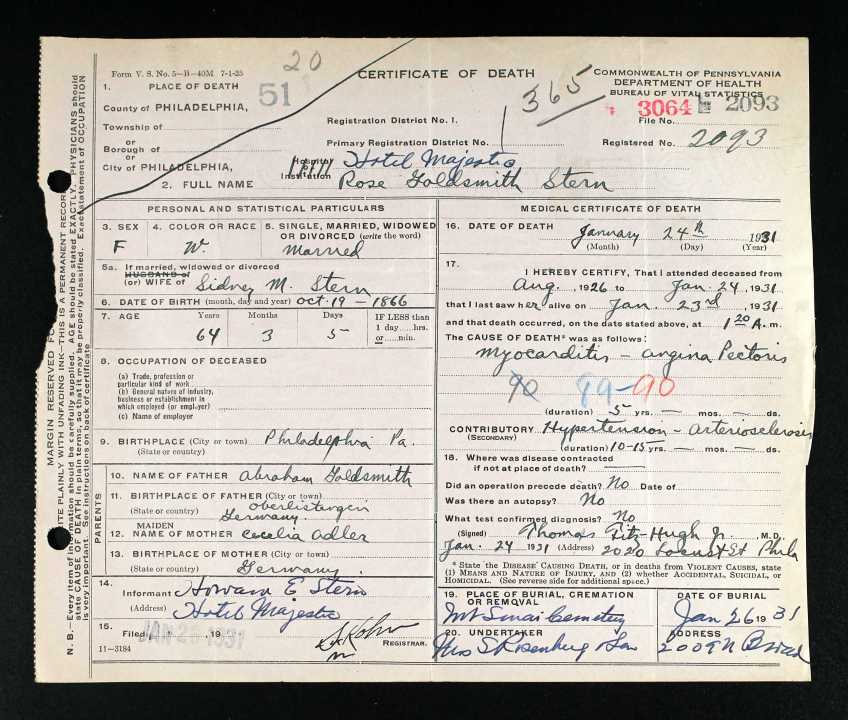 Form V. S. No. 5—B—40M 7-1-25
20
CERTIFICATE OF DEATH
COMMONWEALTH OF PENNSYLVANIA
DEPARTMENT OF HEALTH
BUREAU OF VITAL STATISTICS
1. PLACE OF DEATH
51
365
County of PHILADELPHIA,
3064
2093
File No.
Township of
Registration District No. 1.
or
Borough of
Primary Registration District No.
Registered No. 2093
or
City of PHILADELPHIA,
Hospital or Institution
Hotel Majestic
2. FULL NAME Rose Goldsmith Stern
PERSONAL AND STATISTICAL PARTICULARS
3. SEX
F
4. COLOR OR RACE
W.
5. SINGLE, MARRIED, WIDOWED
OR DIVORCED (write the word)
Married
5a. If married, widowed or divorced
HUSBAND of
(or) WIFE of Sidney M. Stern
6. DATE OF BIRTH (month, day and year) Oct. 19 - 1866
7. AGE
Years
64
Months
3
Days
5
IF LESS than
1 day......hrs.
or......min.
8. OCCUPATION OF DECEASED
(a) Trade, profession or
particular kind of work
(b) General nature of industry,
business or establishment in
which employed (or employer)
(c) Name of employer
9. BIRTHPLACE (City or town) Philadelphia Pa.
(State or country)
PARENTS
10. NAME OF FATHER Abraham Goldsmith
11. BIRTHPLACE OF FATHER (City or town)
(State or country)
Germany.
MAIDEN
12. NAME OF MOTHER Cecelia Adler
13. BIRTHPLACE OF MOTHER (City or town)
(State or country) Germany.
14.
Informant Howard E Stern
(Address) Hotel Majestic
15.
Filed 19
REGISTRAR.
11-3184
MEDICAL CERTIFICATE OF DEATH
16. DATE OF DEATH
January 24th 1931
(Month) (Day) (Year)
17.
I HEREBY CERTIFY, That I attended deceased from
Aug. 1926 to Jan. 24, 1931
that I last saw her alive on Jan. 23rd, 1931
and that death occurred, on the date stated above, at 1 20 A.m.
The CAUSE OF DEATH* was as follows:
Myocarditis - Angina Pectoris
90 89-90
(duration) 5 yrs. — mos. — ds.
CONTRIBUTORY Hypertension - Arteriosclerosis
(SECONDARY)
(duration) 10-15 yrs. — mos. — ds.
18. Where was disease contracted
if not at place of death? —
Did an operation precede death? No Date of
Was there an autopsy? No
What test confirmed diagnosis? No
(Signed) Thomas Fitz-Hugh Jr. M.D.
Jan. 24 1931 (Address) 2020 Locust St Phila
* State the DISEASE CAUSING DEATH, or in deaths from VIOLENT CAUSES, state
(1) MEANS AND NATURE OF INJURY, AND (2) whether ACCIDENTAL, SUICIDAL, or
HOMICIDAL. (See reverse side for additional space.)
19. PLACE OF BURIAL, CREMATION
OR REMOVAL
Mt Sinai Cemetery
DATE OF BURIAL
Jan 26 1931
20. UNDERTAKER
S Rosenberg & Son
ADDRESS
2009 N Broad
MARGIN RESERVED FOR
WRITE PLAINLY WITH UNFADING INK—THIS IS A PERMANENT RECORD
N. B.—Every item of information should be carefully supplied. AGE should be stated EXACTLY. PHYSICIANS should
state CAUSE OF DEATH in plain terms, so that it may be properly classified. Exact statement of OCCUPATION
is very important. See instructions on back of certificate